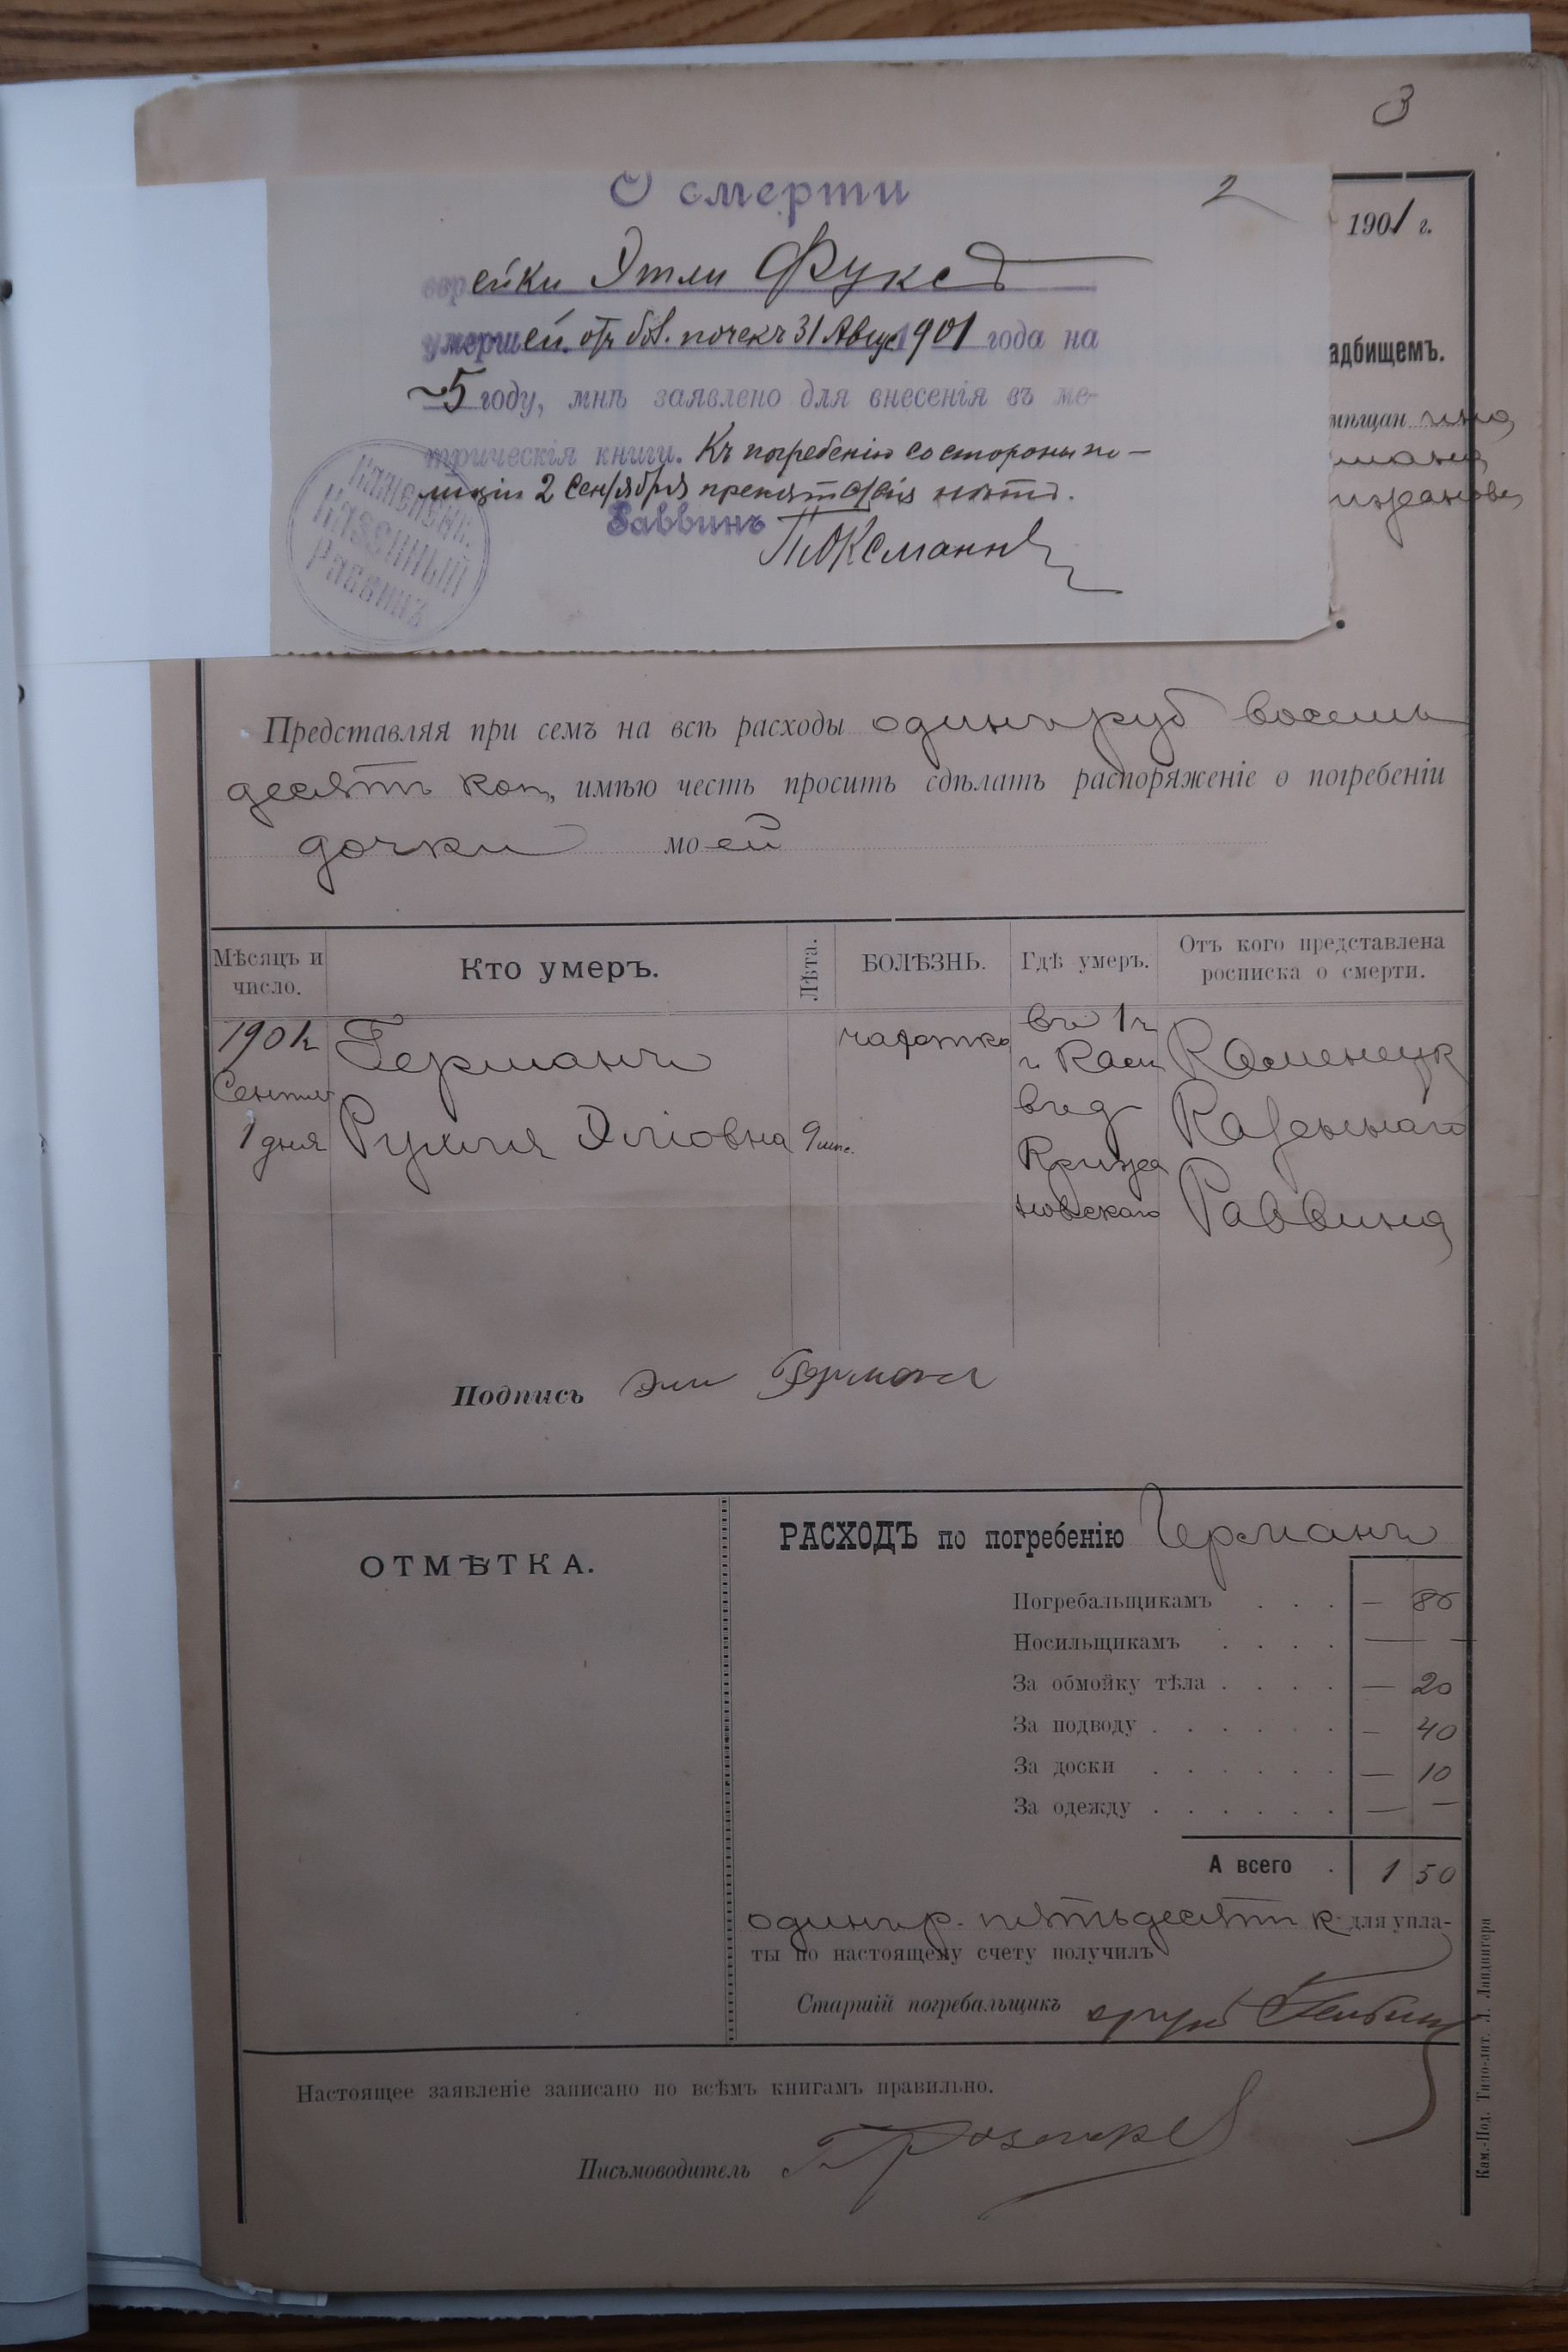 3
О смерти
2
еврейки Этли Фуксъ
умершей отъ бол. почекъ 31 Авгус 1901 года на
5 году, мнѣ заявлено для внесенія въ ме-
трическія книги. Къ погребенію со стороны по-
лиціи 2 Сентября препятствія нѣтъ.
Раввинъ
КАМЕНЕЦК.
КАЗЕННЫЙ
РАВВИНЪ
1901 г.
адбищемъ.
мѣщан
Представляя при семъ на всѣ расходы одинъ руб восемь
десятъ коп, имѣю честь просить сдѣлать распоряженіе о погребеніи
дочки моей
Мѣсяцъ и число.
Кто умеръ.
Лѣта.
БОЛѢЗНЬ.
Гдѣ умеръ.
Отъ кого представлена росписка о смерти.
1901г
Сентяб
1 дня
Германъ
Рухля Эліовна
9 мѣс.
чахотка
въ 1 ч
г Кам
въ д
Крижа
новскаго
Каменецк
Казеннаго
Раввина
Подпись Эли Германъ
ОТМѢТКА.
РАСХОДЪ по погребенію Германъ
Погребальщикамъ . . . — 80
Носильщикамъ . . . . — —
За обмойку тѣла . . . . — 20
За подводу . . . . . . — 40
За доски . . . . . . — 10
За одежду . . . . . . — —
А всего . 1 50
одинъ р. пятьдесятъ к. для упла-
ты по настоящему счету получилъ
Старшій погребальщикъ
Настоящее заявленіе записано по всѣмъ книгамъ правильно.
Письмоводитель
Кам.-Под. Типо-лит. Л. Ландвигера